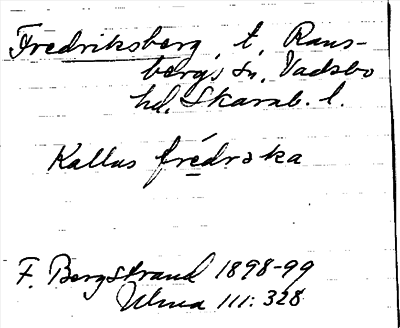 Fredriksberg, t, Rans-
bergs sn, Vadsbo
hd, Skarab. l.
Kallas frédrska
F. Bergstrand 1898-99
Ulma 111: 328